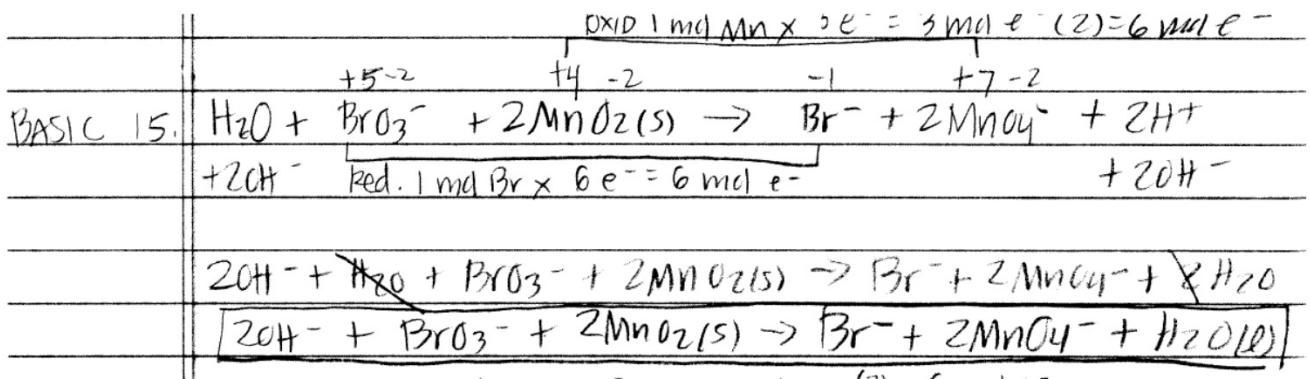 OXID 1 mol Mn x 3e⁻ = 3 mol e⁻ (2)=6 mol e⁻
+5 -2 +4 -2 -1 +7 -2
BASIC 15. H₂O + BrO₃⁻ + 2MnO₂(s) → Br⁻ + 2MnO₄⁻ + 2H⁺
+2OH⁻ Red. 1 mol Br x 6e⁻ = 6 mol e⁻ +2OH⁻
2OH⁻ + H₂O + BrO₃⁻ + 2MnO₂(s) → Br⁻ + 2MnO₄⁻ + 2H₂O
2OH⁻ + BrO₃⁻ + 2MnO₂(s) → Br⁻ + 2MnO₄⁻ + H₂O(l)